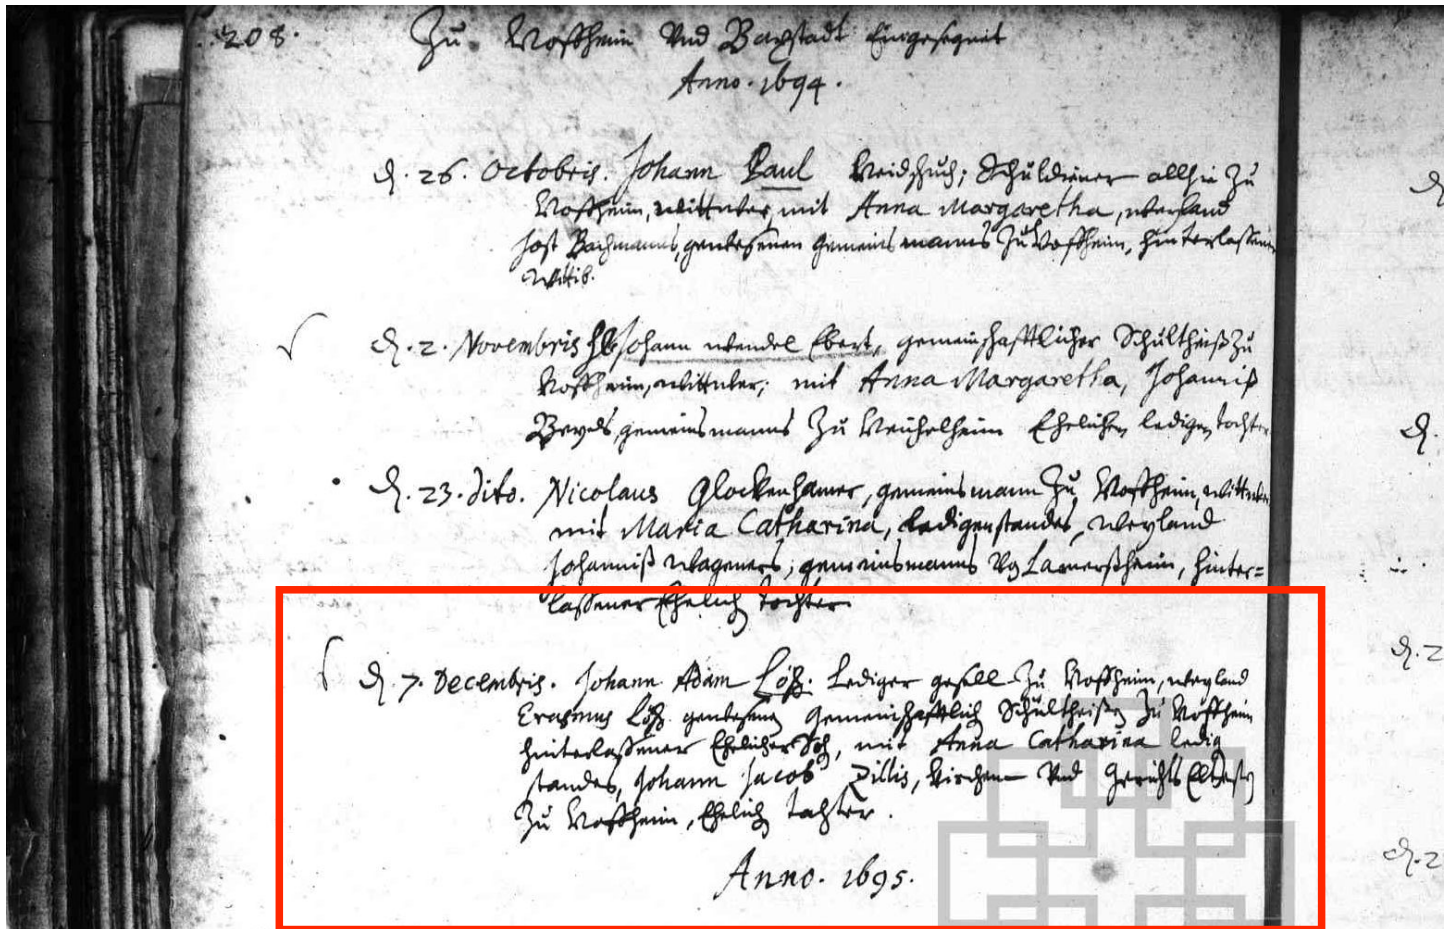 208.
Zu Woßheim Und Baxstadt Eingesegnet
Anno. 1694.
d. 26. Octobris. Johann Paul Schuldiener allhie zu
Woßheim, wittwber, mit Anna Margaretha, weyland
Jost Bachmanns, gewesenen Gemeinsmanns Zu Woßheim, hinterlassene
Wittib.
d. 2. Novembris Johann Wendel Ebert, gemeinschafftlicher Schultheiß Zu
Woßheim, wittwber, mit Anna Margaretha, Johanniß
gemeinsmanns Zu Ehelichen ledigen tochter
d. 23. dito. Nicolaus Glockenhamer, gemeinsmann Zu Woßheim, wittwber
mit Maria Catharina, Ledigenstandes, Weyland
Johanniß Wageners, gemeinsmanns hinter=
laßener Ehelich tochter
d. 7. Decembris. Johann Adam Löß. Lediger gesell Zu Woßheim, weyland
Erasmus Löß. gewesenen Gemeinschafftlich Schultheißen Zu Woßheim
hinterlaßener Ehelicher Soh, mit Anna Catharina ledig
standes, Johann Jacob Zillis, Kirchen Und Gerichts Eltesten
Zu Woßheim, Ehelich tochter.
Anno. 1695.